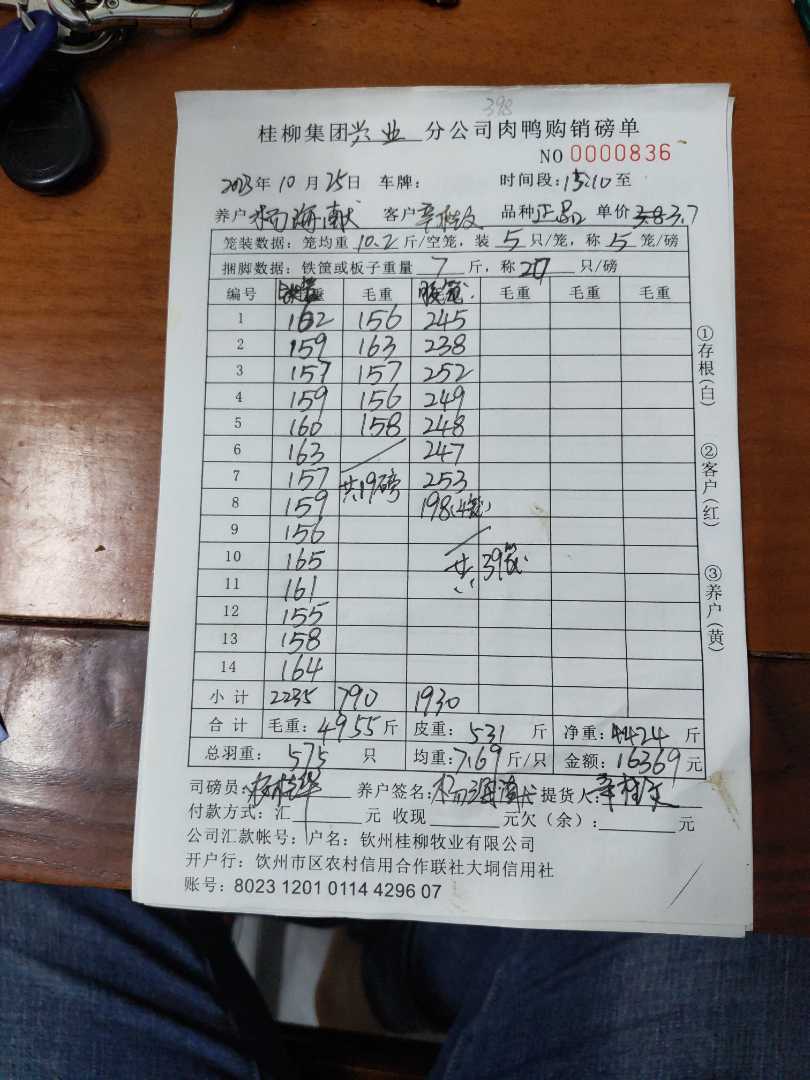 398
桂柳集团兴业分公司肉鸭购销磅单
NO 0000836
2023年10月25日 车牌: 时间段:15:10至
养户 杨海献 客户 品种 正品 单价 3.8 3.7
笼装数据: 笼均重 10.2 斤/空笼, 装 5 只/笼, 称 5 笼/磅
捆脚数据: 铁筐或板子重量 7 斤, 称 20 只/磅
编号 毛重 胶笼 毛重 毛重 毛重
1 162 156 245
2 159 163 238
3 157 157 252
4 159 156 249
5 160 158 248
6 163 247
7 157 共19磅 253
8 159 198(4笼)
9 156
10 165 共39笼
11 161
12 155
13 158
14 164
小计 2235 790 1930
合计 毛重: 4955 斤 皮重: 531 斤 净重: 4424 斤
总羽重: 575 只 均重: 7.69 斤/只 金额: 16369 元
司磅员: 养户签名: 杨海献 提货人:
付款方式: 汇 元 收现 元欠(余): 元
公司汇款帐号: 户名: 钦州桂柳牧业有限公司
开户行: 饮州市区农村信用合作联社大垌信用社
账号: 8023 1201 0114 4296 07
①存根(白)
②客户(红)
③养户(黄)